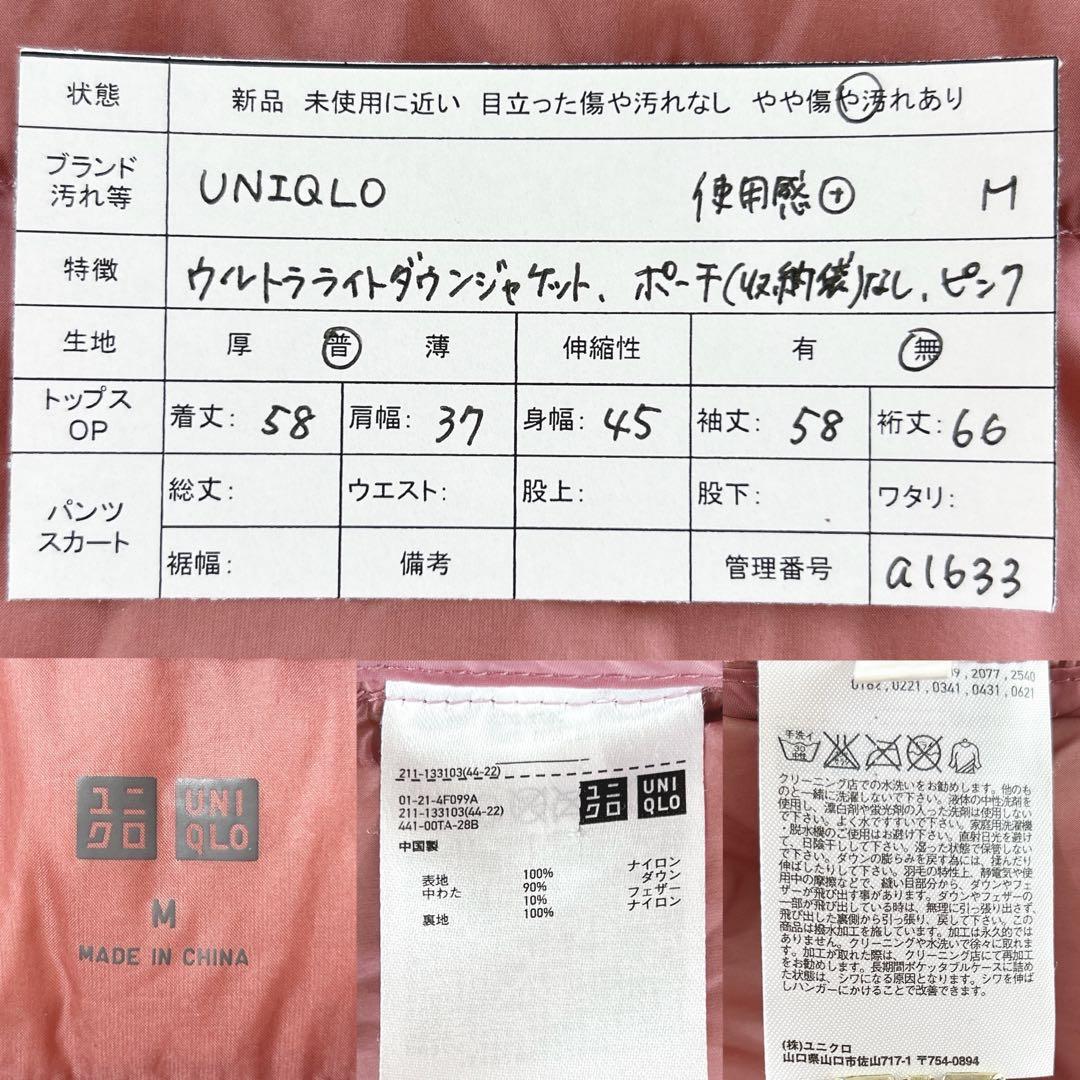 状態 新品 未使用に近い 目立った傷や汚れなし やや傷や汚れあり
ブランド
汚れ等 UNIQLO 使用感⊕ M
特徴 ウルトラライトダウンジャケット、ポーチ(収納袋)なし、ピンク
生地 厚 普 薄 伸縮性 有 無
トップス
OP 着丈: 58 肩幅: 37 身幅: 45 袖丈: 58 裄丈: 66
パンツ
スカート 総丈: ウエスト: 股上: 股下: ワタリ:
裾幅: 備考 管理番号 a1633
ユニ
クロ
UNI
QLO
M
MADE IN CHINA
211-133103(44-22)
01-21-4F099A
211-133103(44-22)
441-00TA-28B
ユニ
クロ
UNI
QLO
中国製
表地 100% ナイロン
中わた 90% ダウン
10% フェザー
裏地 100% ナイロン
9, 2077, 2540
0182, 0221, 0341, 0431, 0621
手洗イ
30
中性
クリーニング店での水洗いをお勧めします。他のも
のと一緒に洗濯しないで下さい。液体の中性洗剤を
使用し、漂白剤や蛍光剤の入った洗剤は使用しない
で下さい。よく水ですすいで下さい。家庭用洗濯機
・脱水機のご使用はお避け下さい。直射日光を避け
て、日陰干しして下さい。湿った状態で保管しない
で下さい。ダウンの膨らみを戻す為には、揉んだり
伸ばしたりして下さい。羽毛の特性上、静電気や使
用中の摩擦などで、縫い目部分から、ダウンやフェ
ザーが飛び出す事があります。ダウンやフェザーの
一部が飛び出している時は、無理に引っ張り出さず、
飛び出した裏側から引っ張り、戻して下さい。この
商品は撥水加工を施しています。加工は永久的では
ありません。クリーニングや水洗いで徐々に取れま
す。加工が取れた際は、クリーニング店にて再加工
をお勧めします。長期間ポケッタブルケースに詰め
た状態は、シワになる原因となります。シワを伸ば
しハンガーにかけることで改善できます。
(株)ユニクロ
山口県山口市佐山717-1 〒754-0894